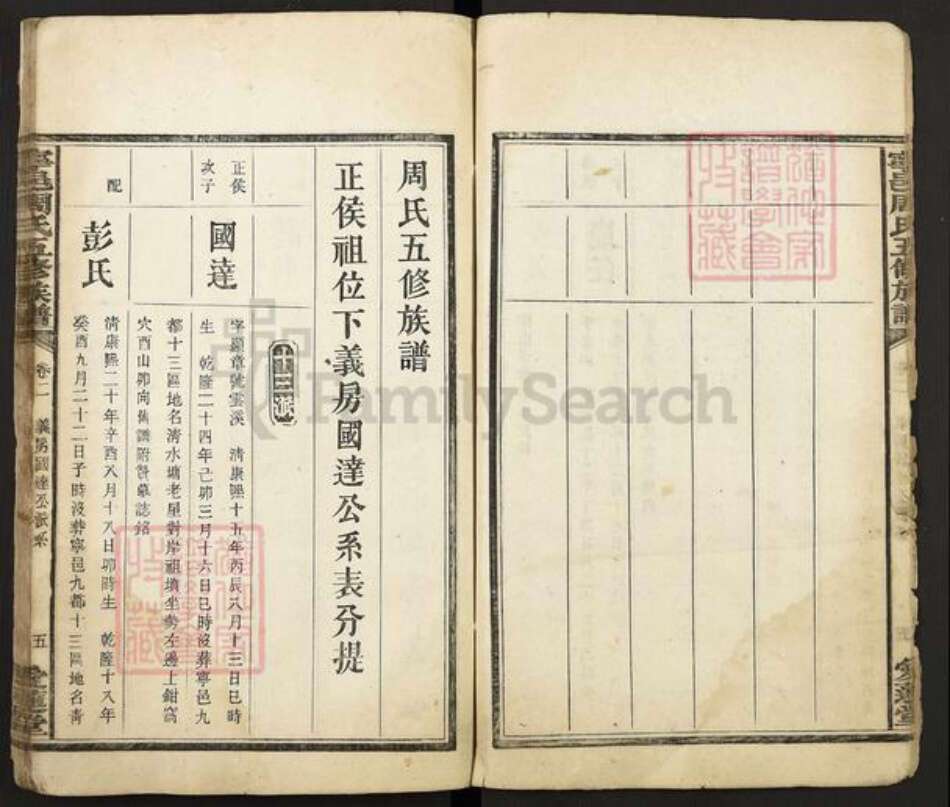 寧邑周氏五修族譜
周氏五修族譜
正侯祖位下義房國達公系表分提
十三派
正侯次子
國達
字顯章號雲溪 清康熙十五年丙辰八月十三日巳時
生 乾隆二十四年己卯三月十六日巳時沒葬寧邑九
都十三區地名清水塘老屋對岸祖墳坐勢左邊上鉗窩
穴酉山卯向舊譜附誌墓誌銘
配
彭氏
清康熙二十年辛酉八月十八日卯時生 乾隆十八年
癸酉九月二十二日子時沒葬寧邑九都十三區地名青
寧邑周氏五修族譜
卷二
義房國達公派系
五
愛蓮堂
愛蓮堂
FamilySearch